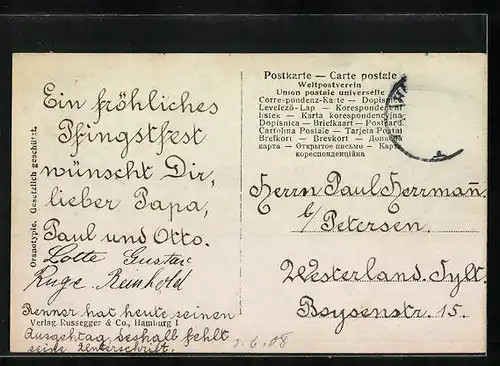 Ein fröhliches
Pfingstfest
wünscht Dir,
lieber Papa,
Paul und Otto.
Lotte Gustav
Ruge Reinhold
Renner hat heute seinen
Verlag. Russegger & Co., Hamburg 1
Ausgehtag, deshalb fehlt
seine Unterschrift.
6. 08
Oranotypie. Gesetzlich geschützt.
Postkarte — Carte postale
Weltpostverein
Union postale universelle
Correspondenz-Karte — Dopisnice
Levelező-Lap — Korespondenční
lístek — Karta korespondencyjna
Dopisnica — Briefkaart — Postcard
Cartolina Postale — Tarjeta Postal
Brefkort — Brevkort —
карта — Открытое письмо — Карта
кореспонденційна
Herrn Paul Herrmañ.
b/ Petersen.
Westerland Sylt.
Boysenstr. 15.